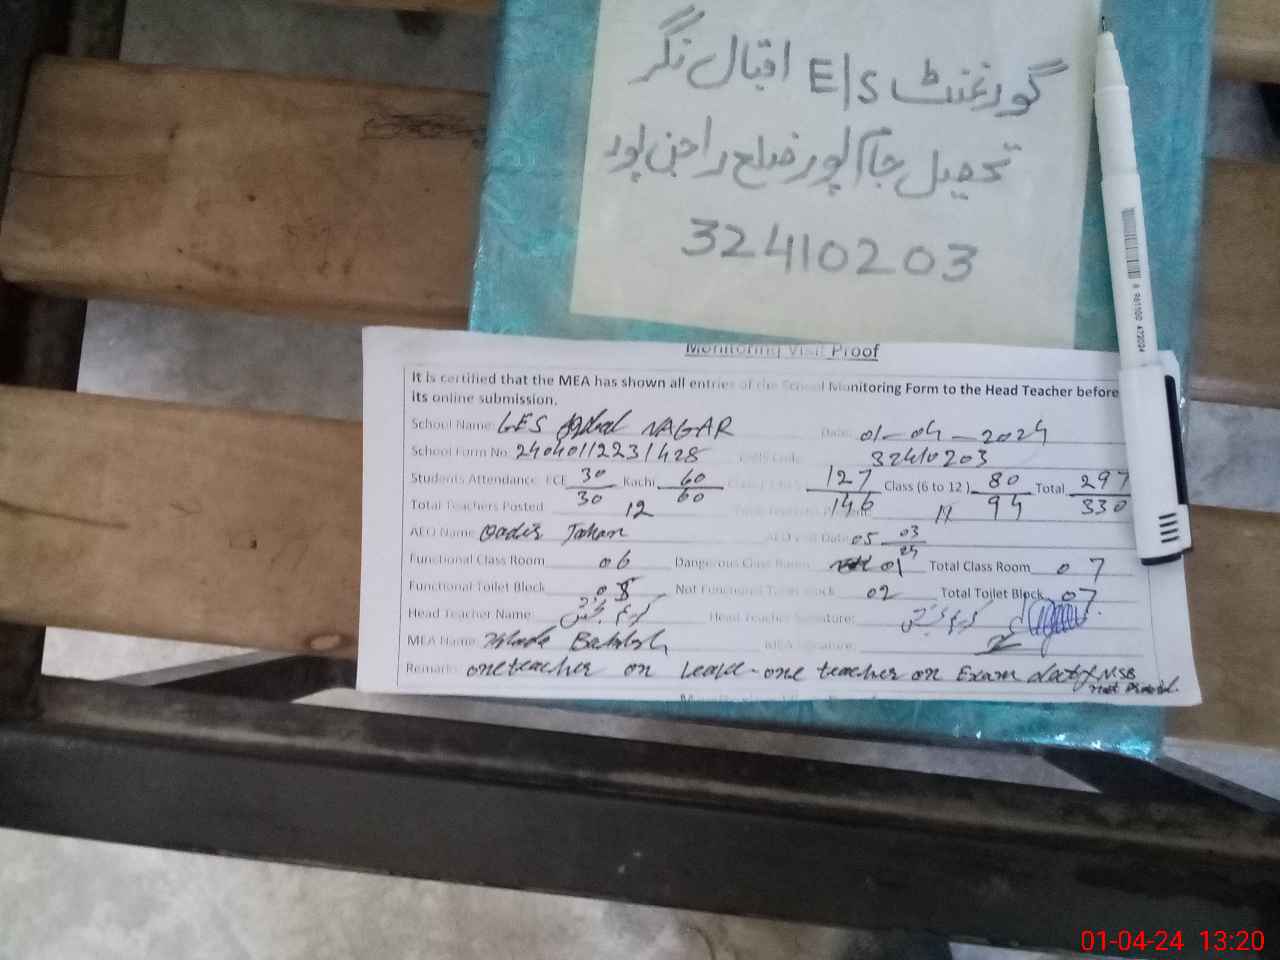 گورنمنٹ E/S اقبال نگر
تحصیل جام پور ضلع راجن پور
32410203
Monitoring Visit Proof
It is certified that the MEA has shown all entries of the School Monitoring Form to the Head Teacher before
its online submission.
School Name: GES Iqbal NAGAR Date: 01-04-2024
School Form No. 24040112231428 EMIS Code 32410203
Students Attendance: ECE 30/30 Kachi 60/60 127/146 Class (6 to 12) 80/94 Total 297/330
Total Teachers Posted 12 11
AEO Name Qadir AEO Visit Date 05 03/24
Functional Class Room 06 Dangerous Class Room 01 Total Class Room 07
Functional Toilet Block 05 Not Functional Toilet Block 02 Total Toilet Block 07
Head Teacher Name: Head Teacher Signature:
MEA Name: Bakhsh MEA Signature:
Remarks one teacher on Leave - one teacher on Exam duty NSB
not
01-04-24 13:20